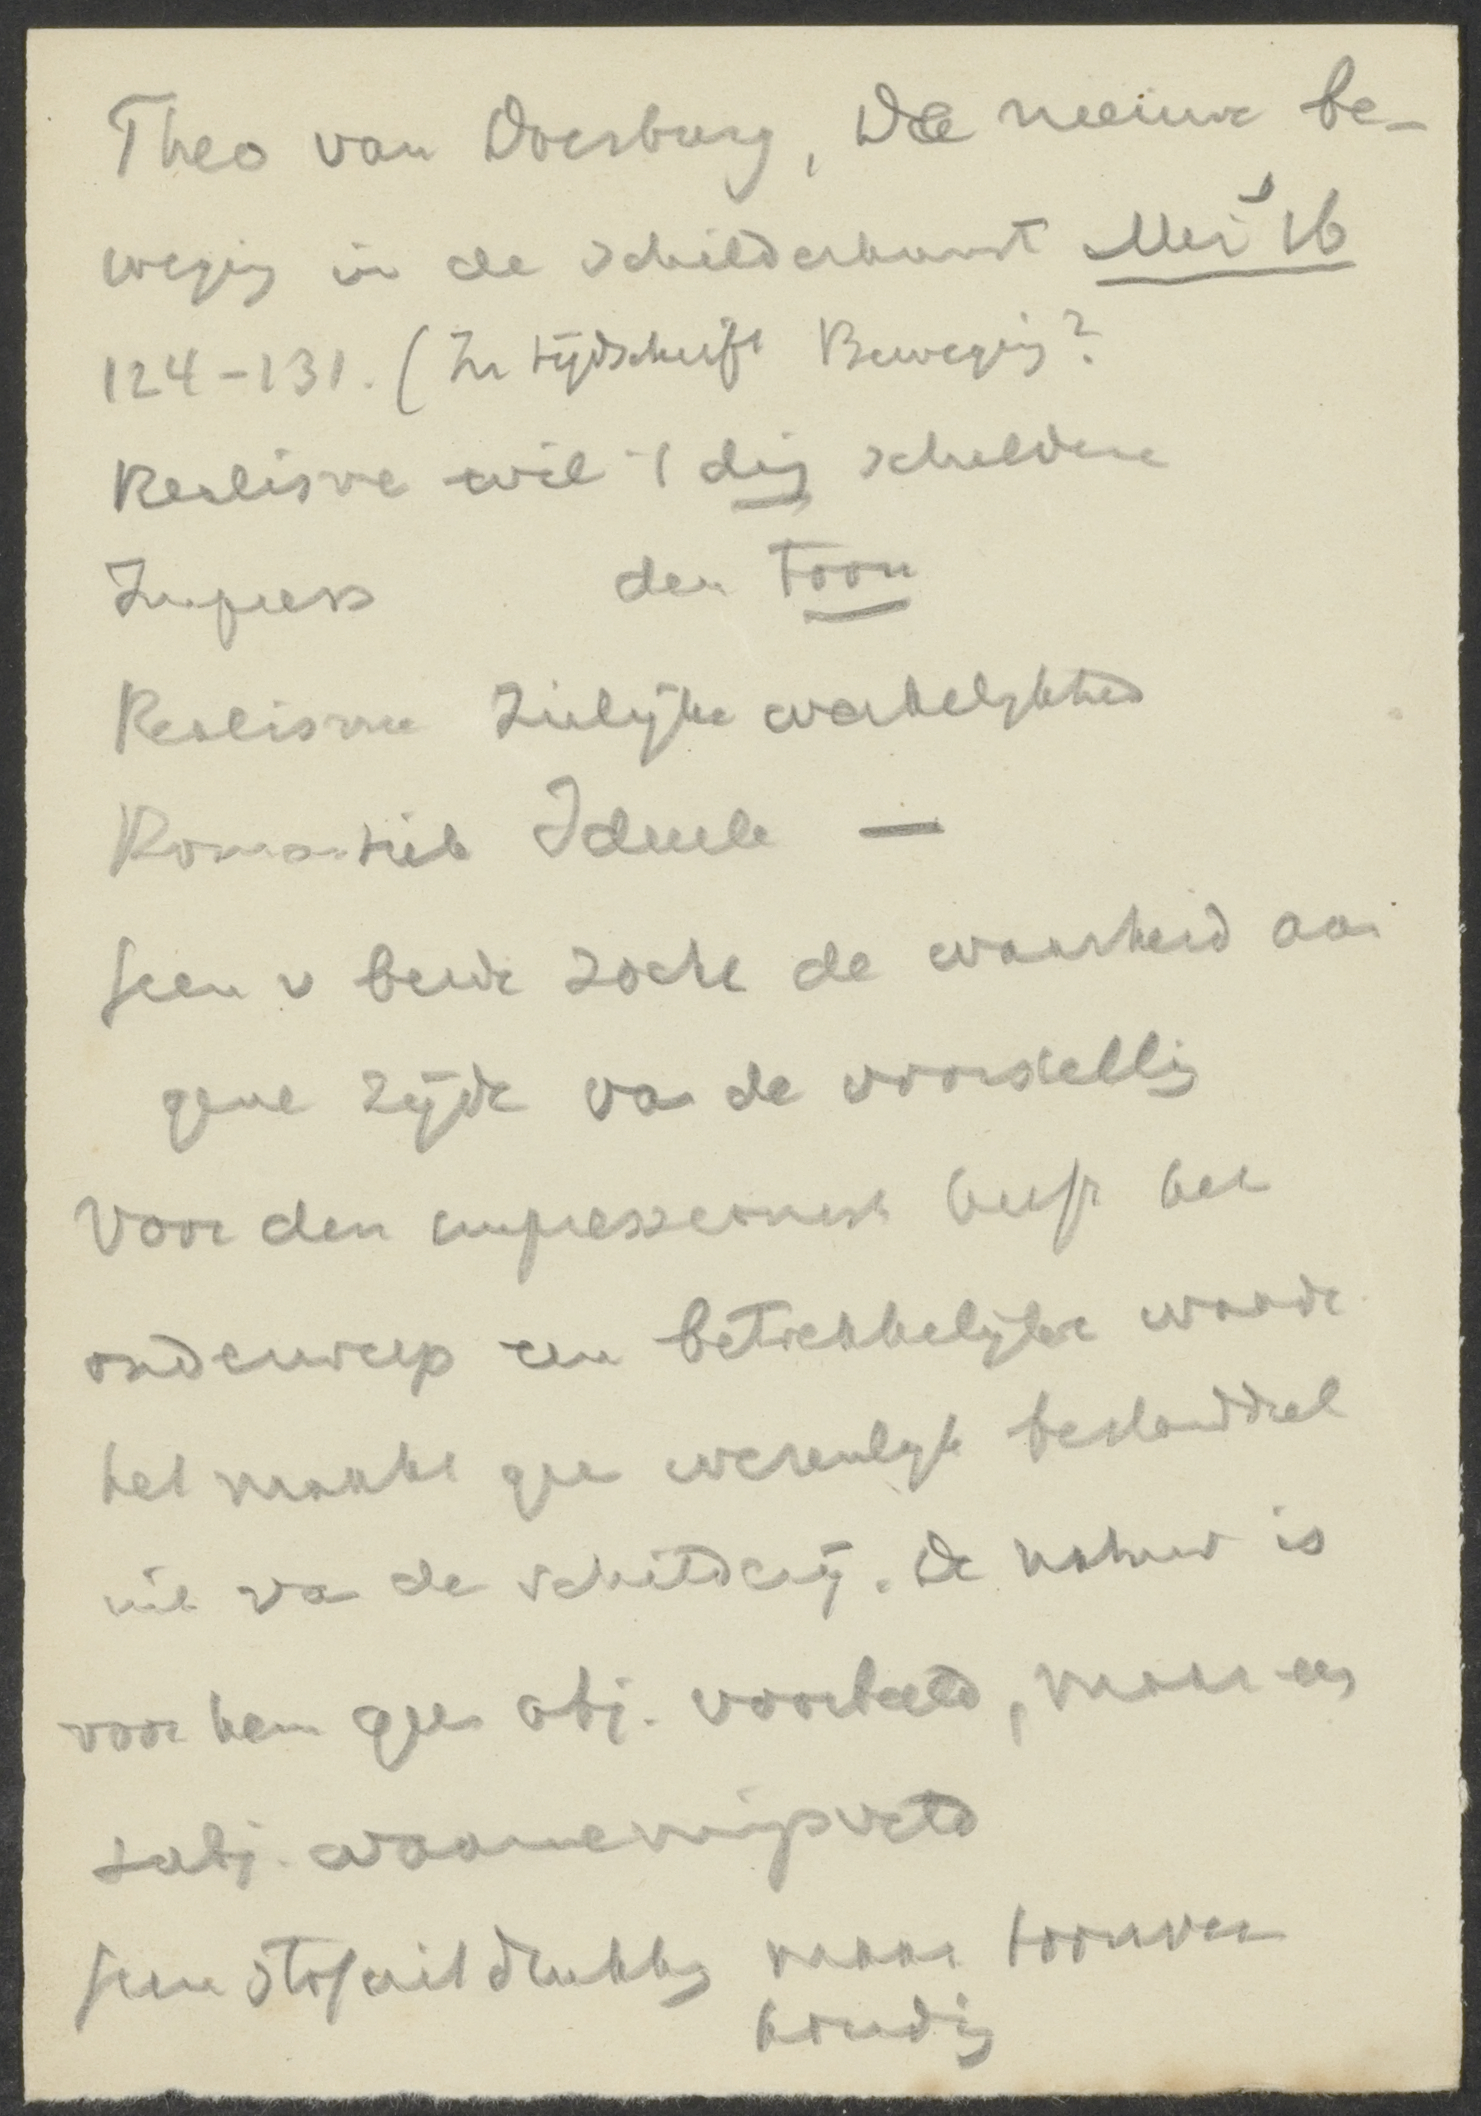 Theo van Doesburg, De nieuwe be-
weging in de schilderkunst Mei '16
124-131. (In tijdschrift Beweging?
Realisme wil 't ding schilderen
Impress den toon
Realisme Zielijke werkelijkheid
Romantiek Ideeele —
Geen v beide zocht de waarheid aan
gene zijde van de voorstelling
Voor den impressionist heeft het
onderwerp een betrekkelijke waarde
het maakt geen wezenlijk bestanddeel
uit van de schilderij. De natuur is
voor hem geen obj. voorbeeld, maar een
subj. waarnemingsveld
Geen stofuitdrukking maar toonver
houding